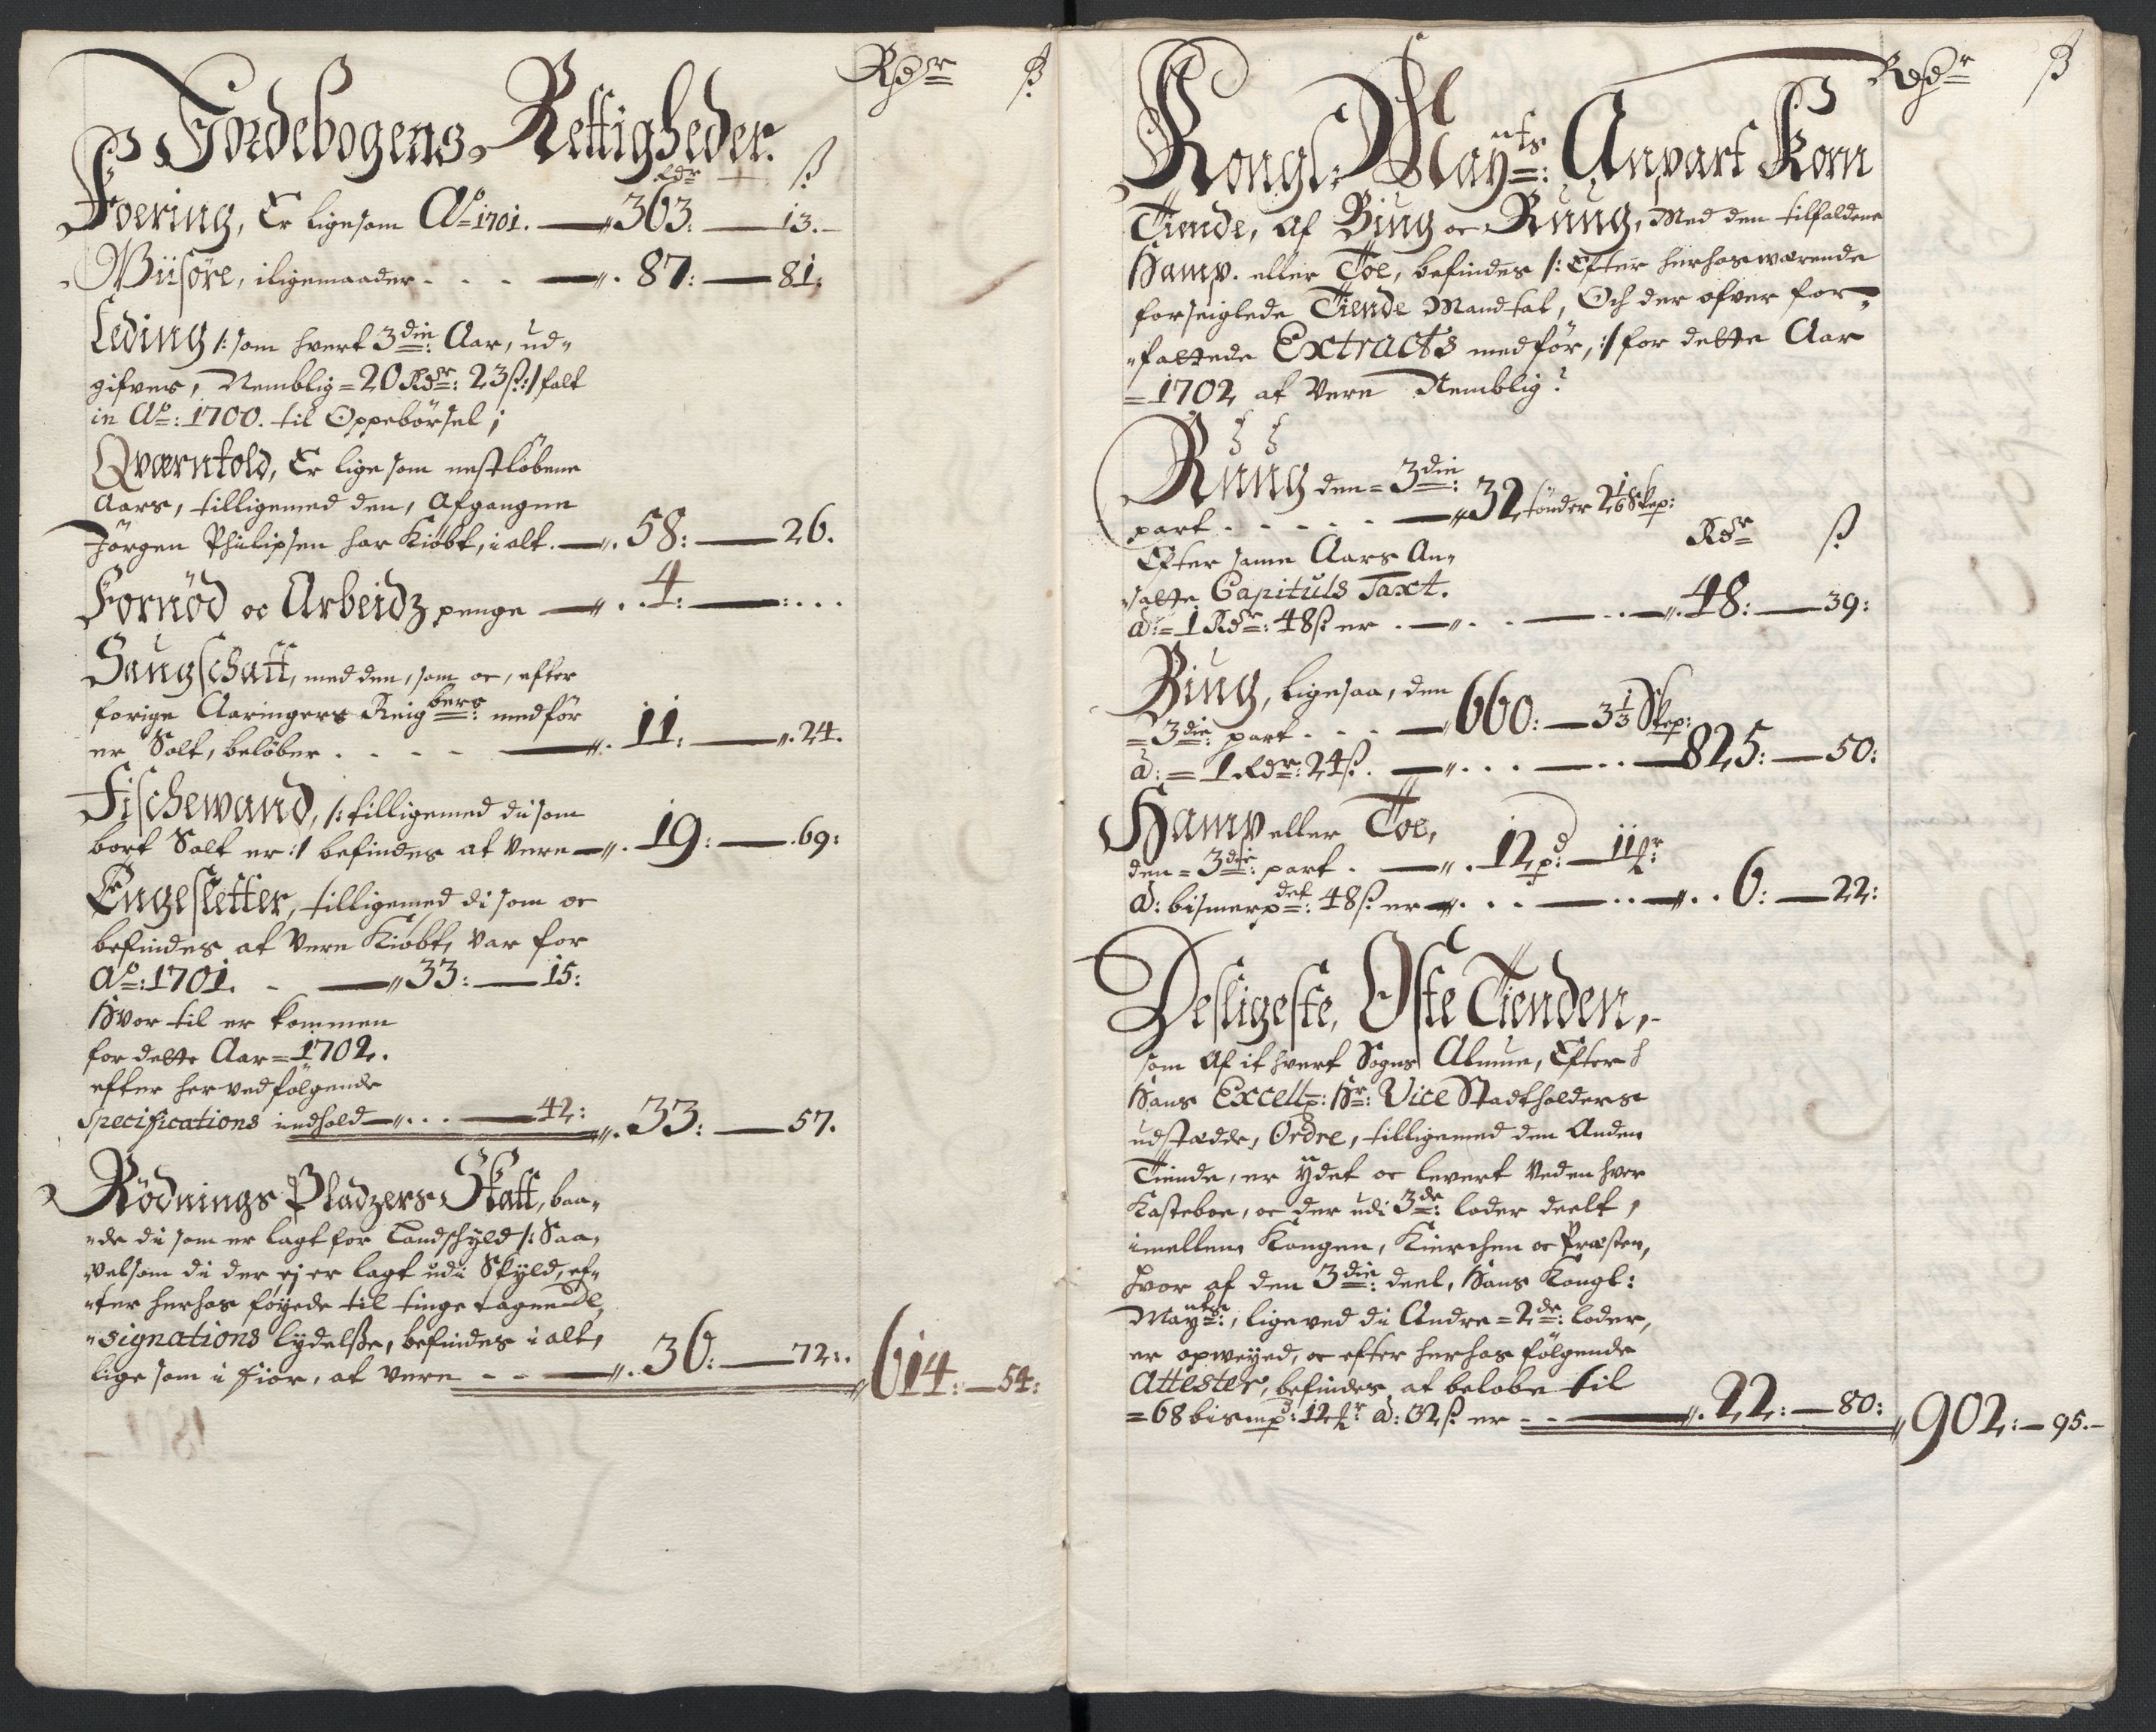 Rdr ß
Jordebogens Rettigheder.
Rdr ß
Foering, Er ligesom Ao 1701. — 363. — 13.
Wiisøre, iligemaader . . . — 87: — 81:
Leding /: som hvert 3die: Aar, ud-
gifves, Nemblig = 20 Rdr: 23 ß :/ falt
in Ao: 1700. til Oppebørsel;
Qværntold, Er ligesom nestløbene
Aars, tilligemed den, Afgangne
Jørgen Philipsen har Kiøbt, i alt. — 58: — 26.
Fornød oc Arbeidz penge — 4: — : . . .
Saugschatt, med den, som oc, efter
forige Aaringers Reigbers: medfør
er Solt, beløber . . . . — 11: — 24.
Fischewand, /: tilligemed di som
bort Solt er :/ befindes at Vere — 19: — 69:
Engesletter, tilligemed di som oc
befindes at Vere Kiøbt, var for
Ao: 1701. — 33: — 15:
Hvor til er kommen
for dette Aar = 1702.
efter her ved følgende
Specifications indhold — . . . — 42: — 33: — 57.
Rødnings Pladzers Skatt, baa-
de di som er lagt for Landschyld /: Saa-
velsom di der ej er lagt udi Skyld, ef-
ter herhos føyede til tinge tagne De-
signations lydelsse, befindes i alt,
lige som i fior, at Vere — 36: — 72: 614: — 54:

Rdr ß
Kongl: Mayts: Anpart Korn
Tiende, af Biug oc Rüug, Med den tilfaldene
Hamp. eller Toe, befindes /: Efter herhosværende
forseiglede Tiende Mandtal, Och der ofver for-
fattede Extracts medfør, :/ for dette Aar
= 1702 at Vere Nemblig:
Rüüg den = 3die:
part . . . . . — 32 tønder 2 1/6 Skep:
Rdr ß
Efter samme Aars An-
satte Capituls Taxt.
a: = 1 Rdr: 48 ß er . — . . — . . — 48: — 39:
Biug, ligesaa, den
= 3die: part . . . — 660: — 3 1/3 Skep:
a: = 1 Rdr: 24 ß. — . . . — . . — 825: — 50:
Hamp eller Toe,
den = 3die: part . — 12 pd: — 11 ℔r:
a: bismerpdet: 48 ß er — . . . — . . — 6: — 22:
Desligeste, Oste Tienden,
som Af it hvert Sogns Almue, Efter
Hans Excell: Hr: Vice Stadtholders
udstædde, Ordre, tilligemed den Anden
Tiende, er ÿdet oc levert Veden hver
Kasteboe, oc der udi 3de: loder deelt,
imellem Kongen, Kierchen oc Præsten,
hvor af den 3die: deel, Hans Kongl:
Mayts:, ligeved di Andre = 2de: loder,
er opweyed, oc efter herhos følgende
Attester, befindes at beløbe til
= 68 bismp: 12 ℔r a: 32 ß er — 22: — 80: 902: — 95.